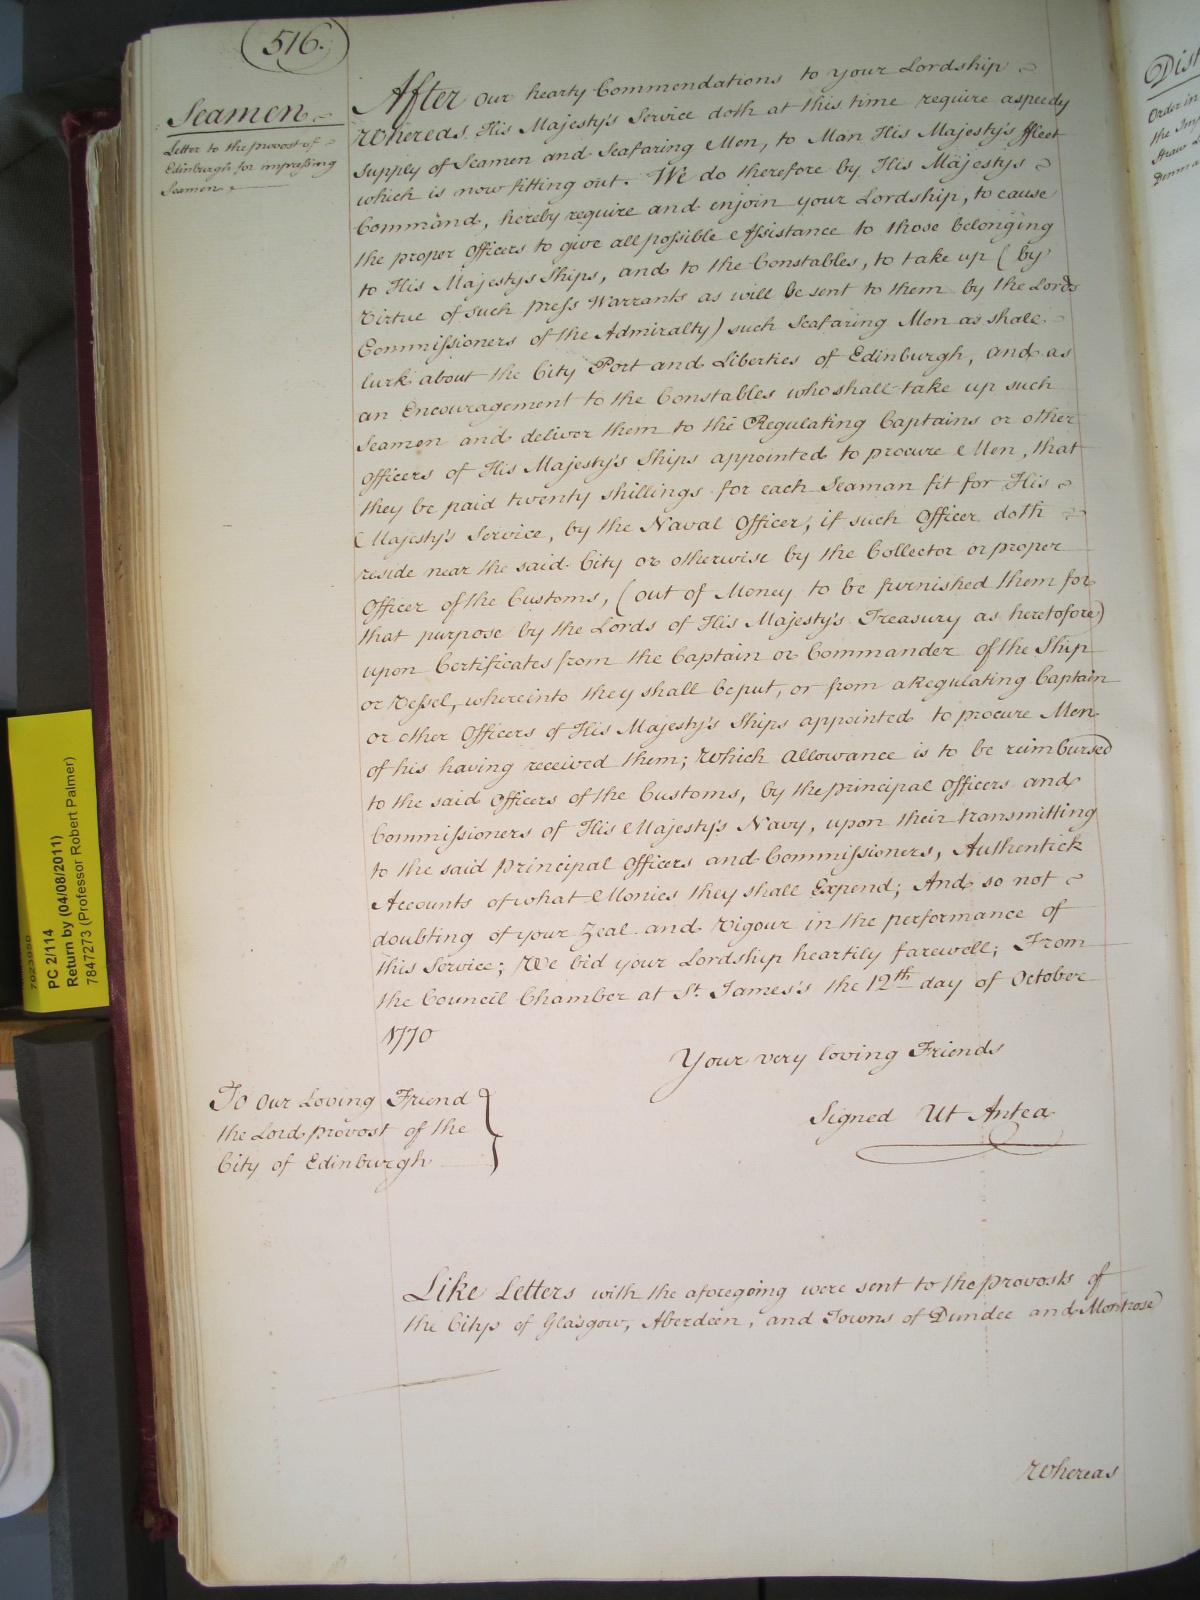 516.
Seamen
Letter to the provost of
Edinburgh for impressing
Seamen
After our hearty Commendations to your Lordship
Whereas His Majesty's Service doth at this time require a speedy
Supply of Seamen and Seafaring Men, to Man His Majesty's ffleet
which is now fitting out. We do therefore by His Majesty's
Command, hereby require and enjoin your Lordship, to cause
the proper Officers to give all possible Assistance to those belonging
to His Majesty's Ships, and to the Constables, to take up (by
Virtue of such Press Warrants as will be sent to them by the Lords
Commissioners of the Admiralty) such Seafaring Men as shall
lurk about the City Port and Liberties of Edinburgh, and as
an Encouragement to the Constables who shall take up such
Seamen and deliver them to the Regulating Captains or other
Officers of His Majesty's Ships appointed to procure Men, that
they be paid twenty shillings for each Seaman fit for His
Majesty's Service, by the Naval Officer, if such Officer doth
reside near the said City or otherwise by the Collector or proper
Officer of the Customs, (out of Money to be furnished them for
that purpose by the Lords of His Majesty's Treasury as heretofore)
upon Certificates from the Captain or Commander of the Ship
or Vessel, whereinto they shall be put, or from a Regulating Captain
or other Officers of His Majesty's Ships appointed to procure Men
of his having received them; Which Allowance is to be reimbursed
to the said Officers of the Customs, by the principal Officers and
Commissioners of His Majesty's Navy, upon their transmitting
to the said Principal Officers and Commissioners, Authentick
Accounts of what Monies they shall Expend; And so not
doubting of your Zeal and Vigour in the performance of
this Service; We bid your Lordship heartily farewell; From
the Council Chamber at St. James's the 12th day of October
1770
Your very loving Friends
To our Loving Friend
the Lord provost of the
City of Edinburgh
Signed Ut Antea
Like Letters with the aforegoing were sent to the provosts of
the Citys of Glasgow, Aberdeen, and Towns of Dundee and Montrose
Whereas
PC 2/114
Return by (04/08/2011)
7847273 (Professor Robert Palmer)
Order in
the Imp
Straw